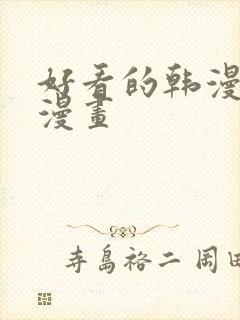 好看的韩漫
漫畫
寺島裕二 岡田